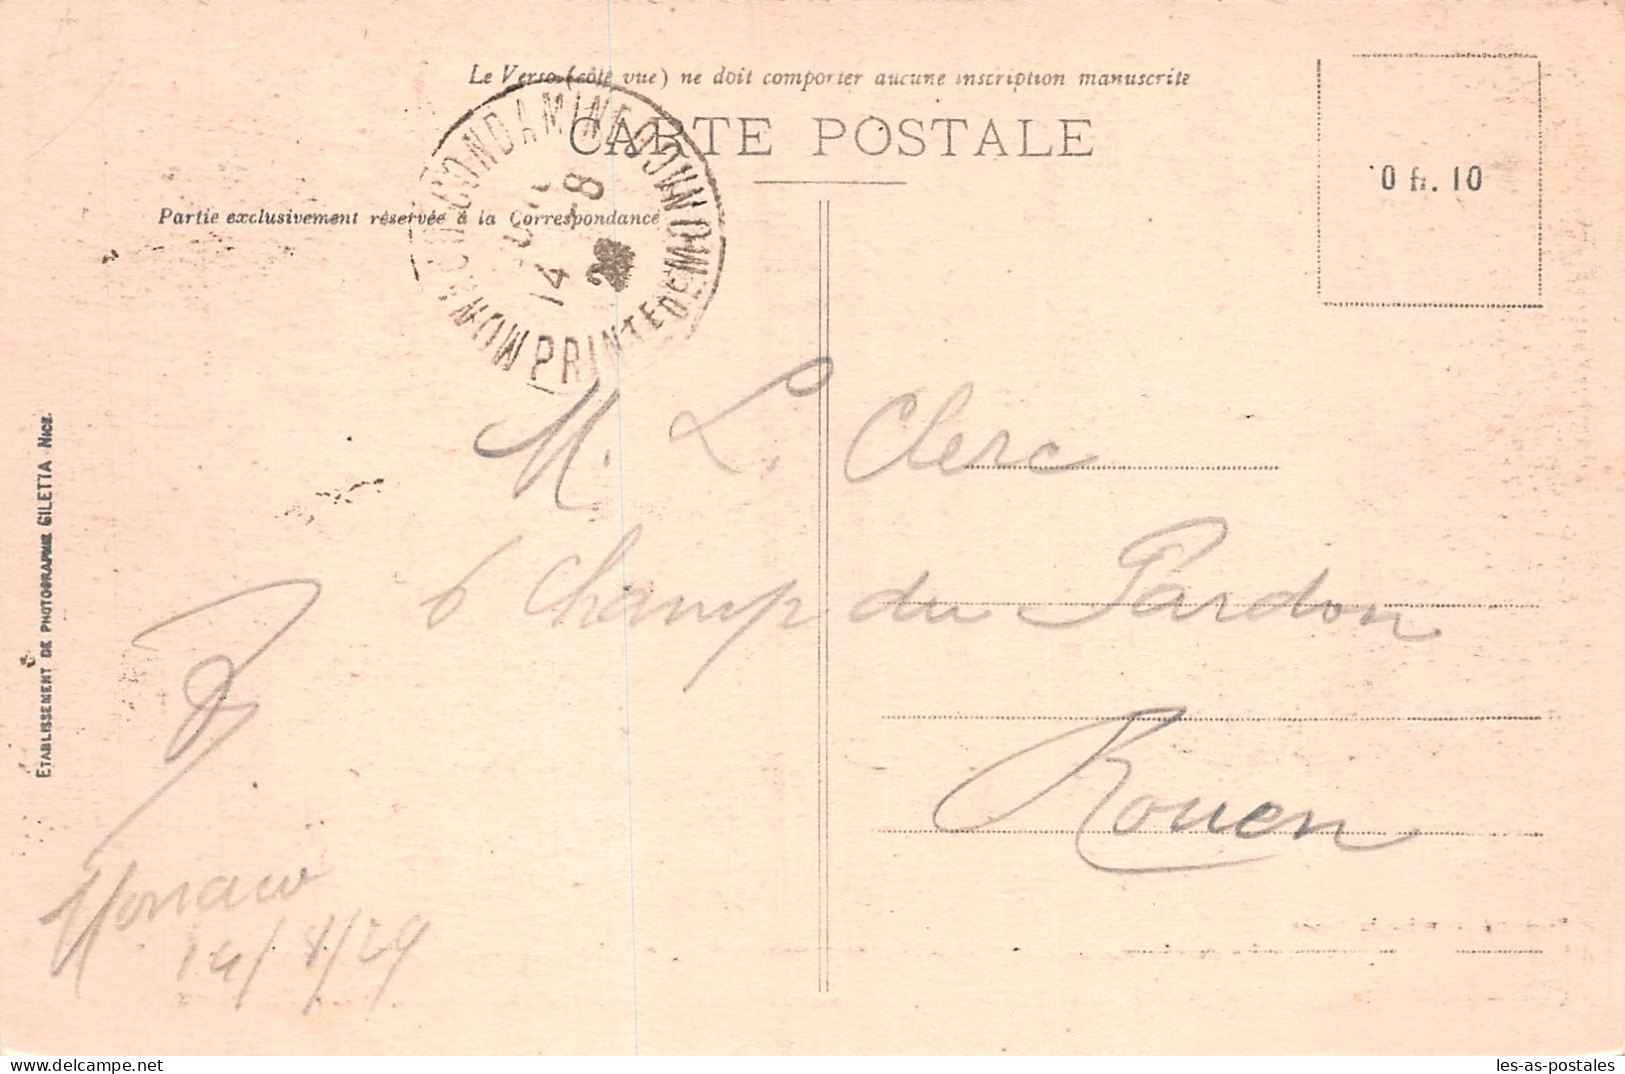 Le Verso (côté vue) ne doit comporter aucune inscription manuscrite
CARTE POSTALE
0 fr. 10
Partie exclusivement réservée à la Correspondance
MONACO CONDAMINE
PRINTÉ DE MONACO
14 -8
29
ETABLISSEMENT DE PHOTOGRAPHIE GILETTA - NICE.
M. L. Clerc
6 Champ du Pardon
Rouen
Monaco
14/8/29
les-as-postales